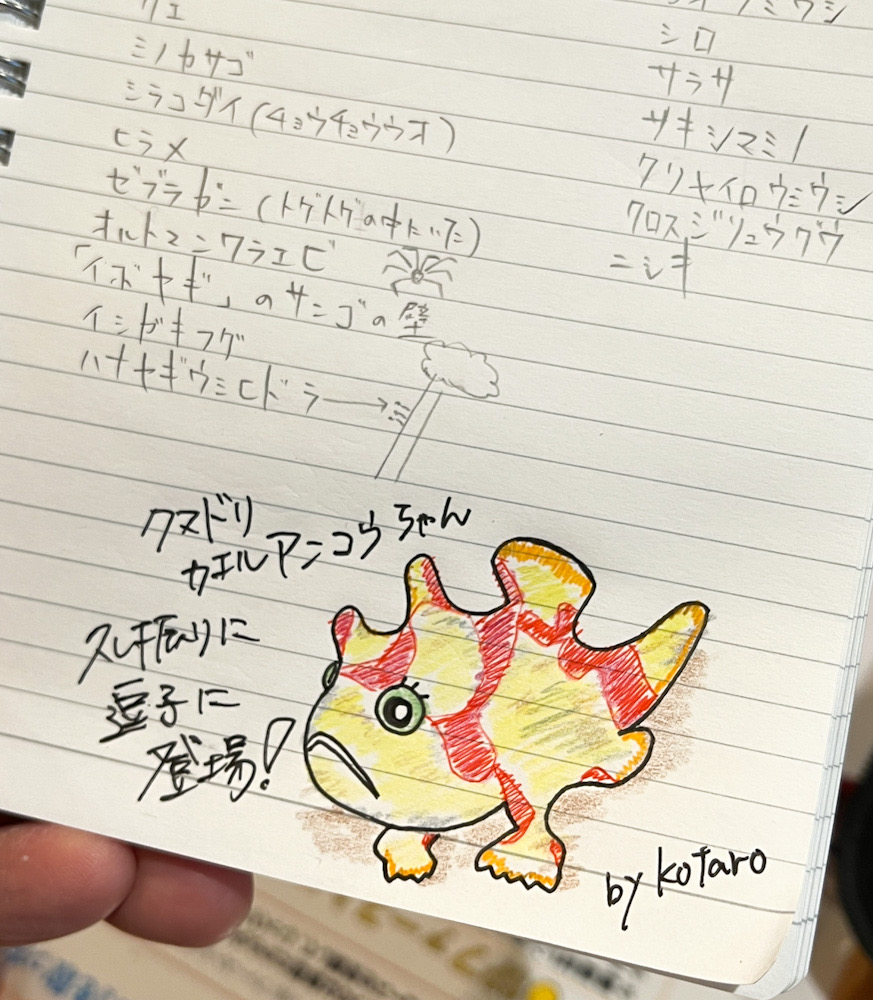 ミノカサゴ
シラコダイ(チョウチョウウオ)
ヒラメ
ゼブラガニ(トゲトゲの中にいた)
オルトマンワラエビ
「イボヤギ」のサンゴの壁
イシガキフグ
ハナヤギウミヒドラ→
シロ
サラサ
サキシマミノ
クリヤイロウミウシ
クロスジリュウグウ
ニシキ
クマドリ
カエルアンコウちゃん
久し振りに
逗子に
登場!
by kotaro